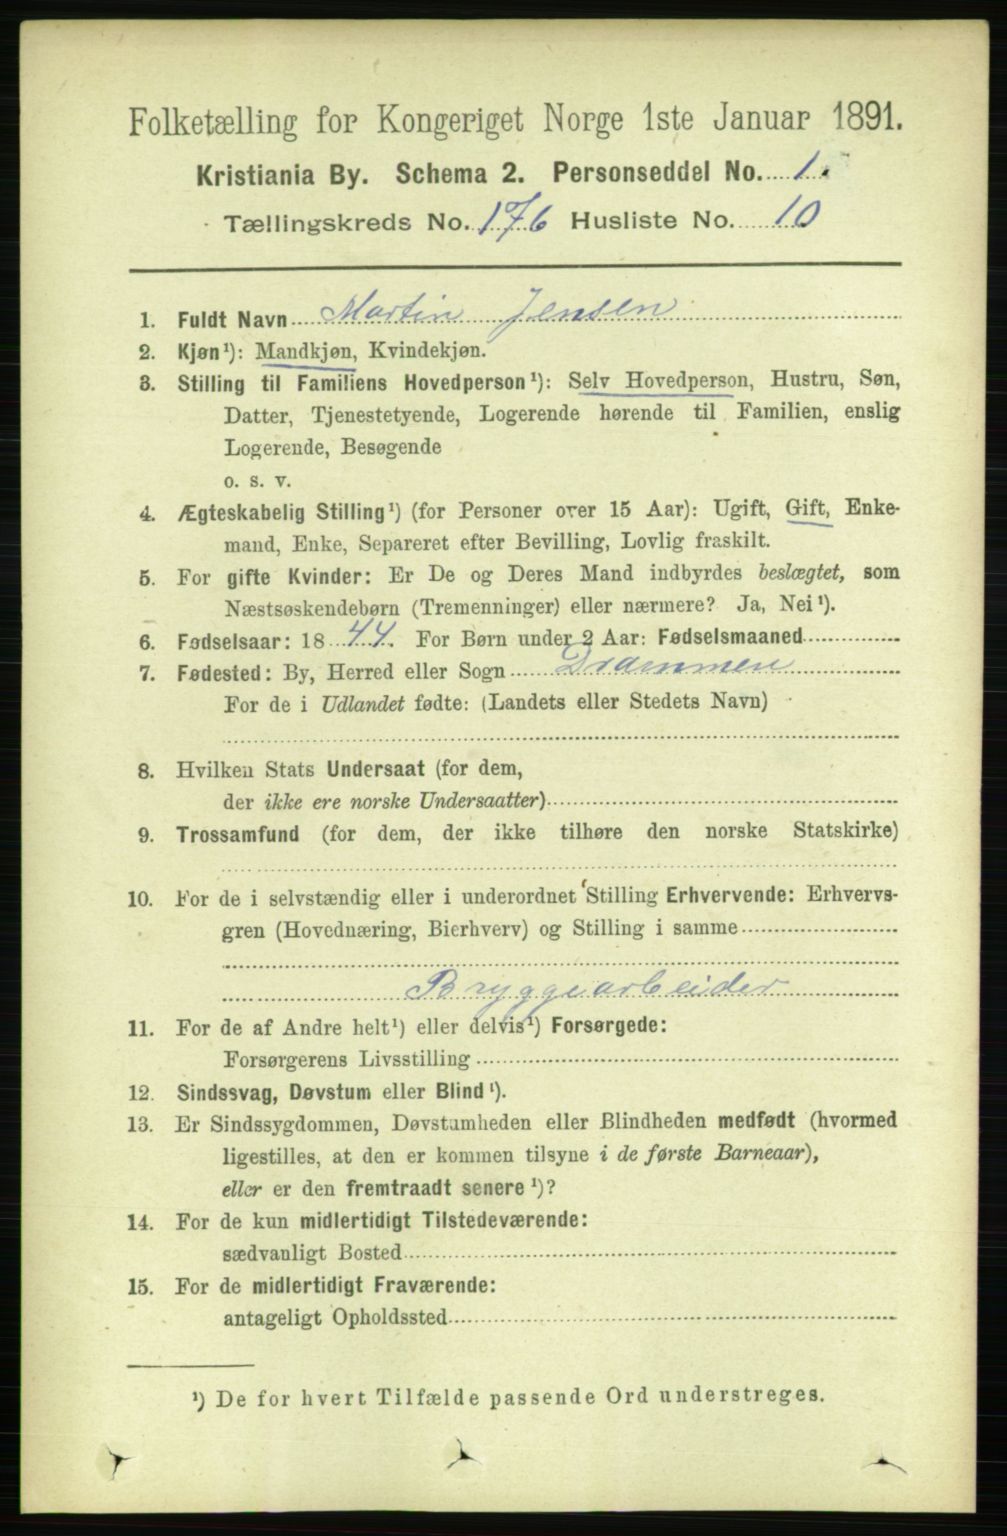 Folketælling for Kongeriget Norge 1ste Januar 1891.
Kristiania By. Schema 2. Personseddel No. 1.
Tællingskreds No. 176 Husliste No. 10
1. Fuldt Navn Martin Jensen
2. Kjøn¹): Mandkjøn, Kvindekjøn.
3. Stilling til Familiens Hovedperson¹): Selv Hovedperson, Hustru, Søn,
Datter, Tjenestetyende, Logerende hørende til Familien, enslig
Logerende, Besøgende
o. s. v.
4. Ægteskabelig Stilling¹) (for Personer over 15 Aar): Ugift, Gift, Enke-
mand, Enke, Separeret efter Bevilling, Lovlig fraskilt.
5. For gifte Kvinder: Er De og Deres Mand indbyrdes beslægtet, som
Næstsøskendebørn (Tremenninger) eller nærmere? Ja, Nei¹).
6. Fødselsaar: 1844. For Børn under 2 Aar: Fødselsmaaned
7. Fødested: By, Herred eller Sogn Drammen
For de i Udlandet fødte: (Landets eller Stedets Navn)
8. Hvilken Stats Undersaat (for dem,
der ikke ere norske Undersaatter)
9. Trossamfund (for dem, der ikke tilhøre den norske Statskirke)
10. For de i selvstændig eller i underordnet Stilling Erhvervende: Erhvervs-
gren (Hovednæring, Bierhverv) og Stilling i samme
Bryggearbeider
11. For de af Andre helt¹) eller delvis¹) Forsørgede:
Forsørgerens Livsstilling
12. Sindssvag, Døvstum eller Blind¹).
13. Er Sindssygdommen, Døvstumheden eller Blindheden medfødt (hvormed
ligestilles, at den er kommen tilsyne i de første Barneaar),
eller er den fremtraadt senere¹)?
14. For de kun midlertidigt Tilstedeværende:
sædvanligt Bosted
15. For de midlertidigt Fraværende:
antageligt Opholdssted
¹) De for hvert Tilfælde passende Ord understreges.